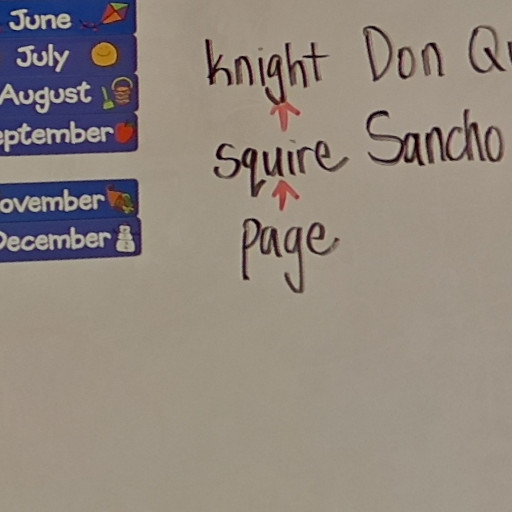 June
July
August
eptember
ovember
December
knight Don Qu
squire Sancho
page